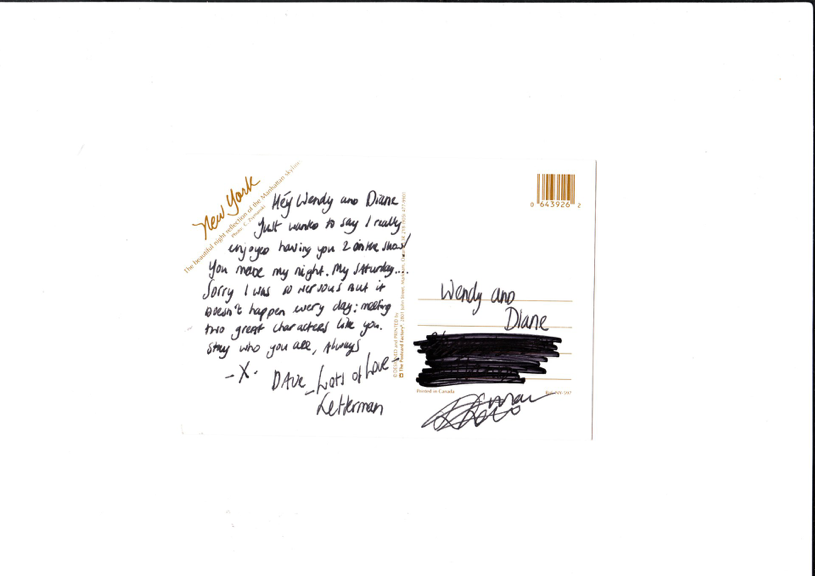 New York
The beautiful night reflection of the Manhattan skyline
Héy Wendy and Diane
Just wanted to say I really
enjoyed having you 2 on the show!
You made my night. My Saturday....
Sorry I was so nervous but it
doesn't happen every day: meeting
two great characters like you.
Stay who you are, Always
-X-
DAVE - Lots of Love -
Letterman
Wendy and
Diane
0 643926 2
Printed in Canada